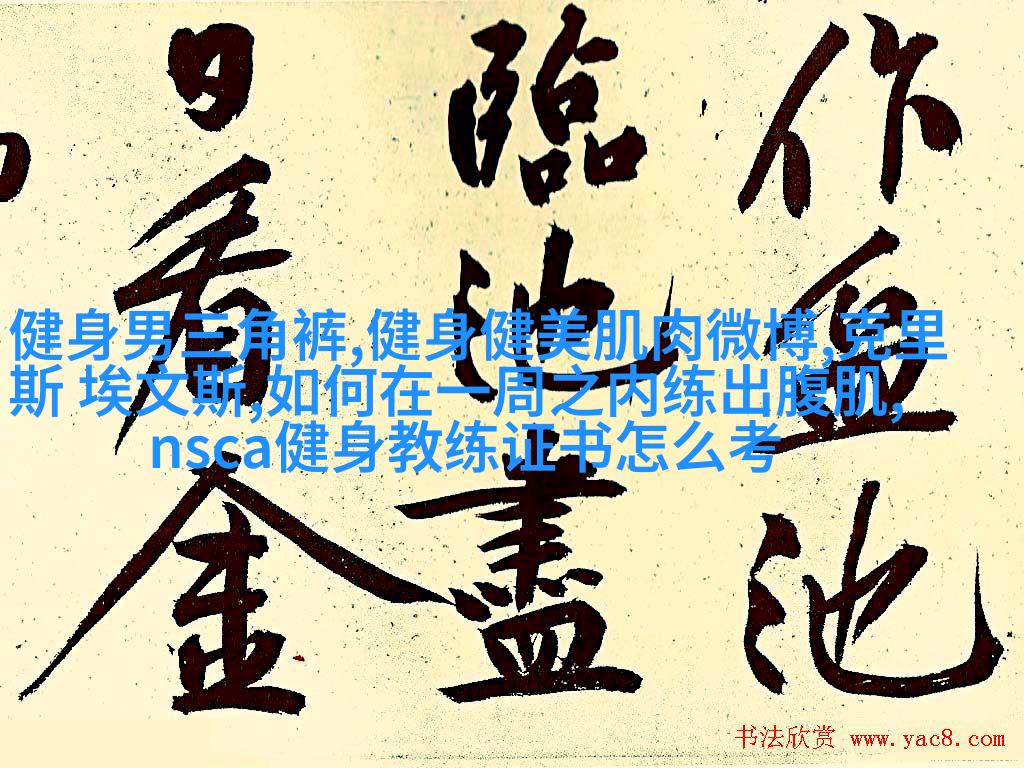 作 池
臨池盡
日看金
健身男三角裤,健身健美肌肉微博,克里
斯 埃文斯,如何在一周之内练出腹肌,
nsca健身教练证书怎么考
书法欣赏 www.yac8.com